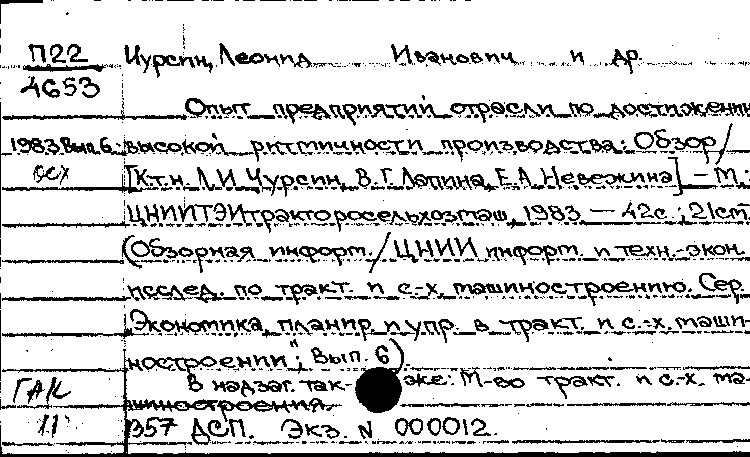 П22 Чурсин, Леонид Иванович и др.
4653
Опыт предприятий отрасли по достижению
1983 Вып.6. высокой ритмичности производства: Обзор/
осх [К.т.н. Л.И. Чурсин, В.Г. Лапина, Е.А. Невежина] – М.:
ЦНИИТЭИтракторосельхозмаш, 1983 – 42с.; 21см.
(Обзорная информ. / ЦНИИ информ. и техн.-экон.
исслед. по тракт. и с-х. машиностроению. Сер.
Экономика, планир. и упр. в тракт. и с.-х. маши-
ностроении"; Вып. 6)
ГАК В надзаг. так- же: М-во тракт. и с.-х. ма-
шиностроения.
11 1357 ДСП. Экз. N 000012.